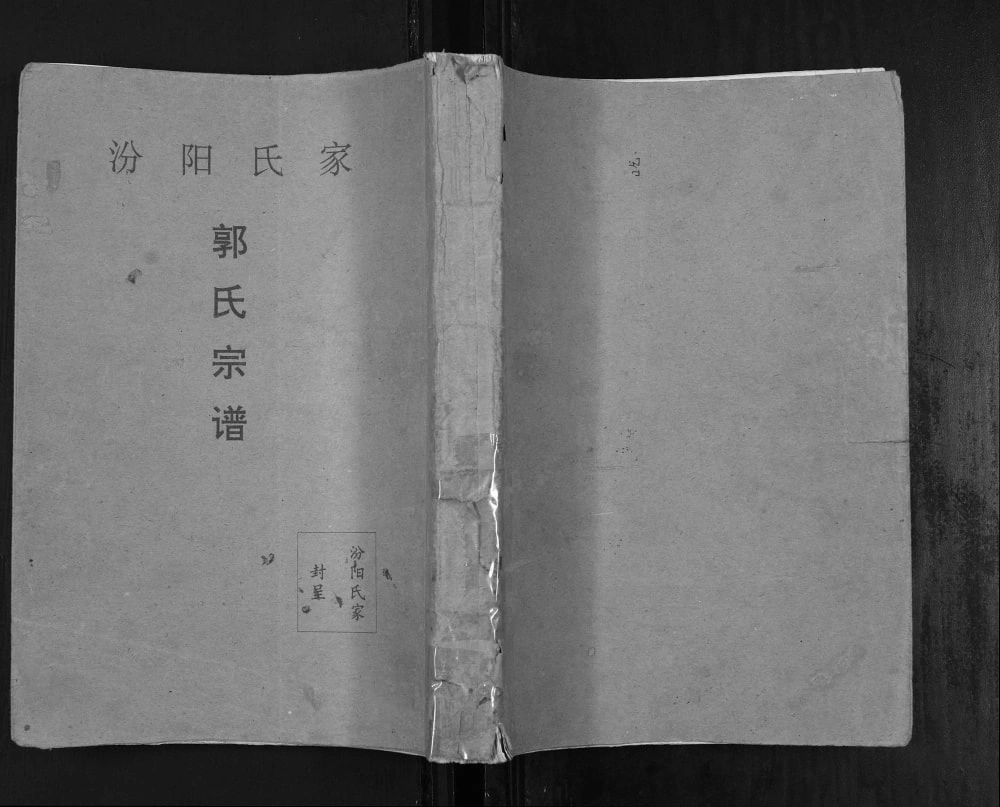 汾阳氏家
郭氏宗谱
汾阳氏家
封呈